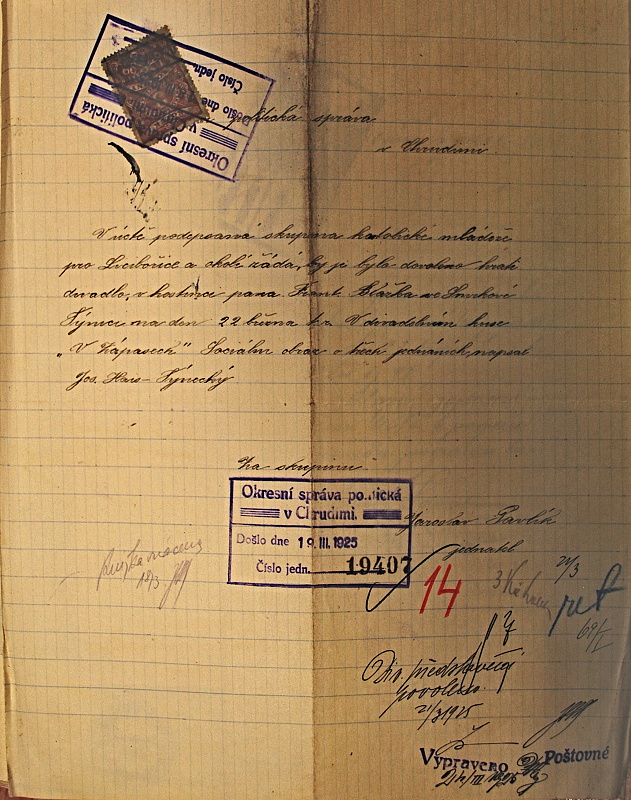 Okresní správa politická
v Chrudimi.
Došlo dne
Číslo jedn.
politická správa
v Chrudimi.
V úctě podepsaná skupina katolické mládeže
pro Licibořice a okolí žádá, by jí bylo dovoleno hrati
divadlo, v hostinci pana Frant. Blažka ve Smrkově
Týnici na den 22 března t.r. V divadelním kuse
„V Zápasech" Sociální obraz o třech jednáních, napsal
Jos. Hais-Týnecký
Za skupinu
Okresní správa politická
v Chrudimi.
Došlo dne 19. III. 1925
Číslo jedn. 19407
Jaroslav Pavlík
jednatel
14
21/3
18/3
Div. představení
povoleno
21/3 1925
Vypraveno
Poštovné